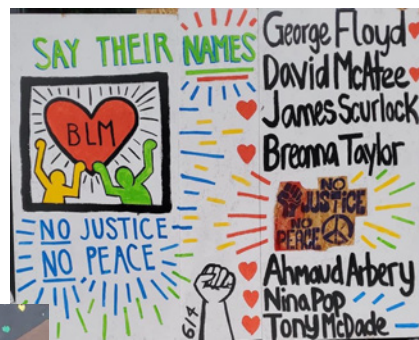 SAY THEIR NAMES
BLM
NO JUSTICE
NO PEACE
George Floyd
David McAtee
James Scurlock
Breonna Taylor
NO
JUSTICE
NO
PEACE
Ahmaud Arbery
Nina Pop
Tony McDade
6/4